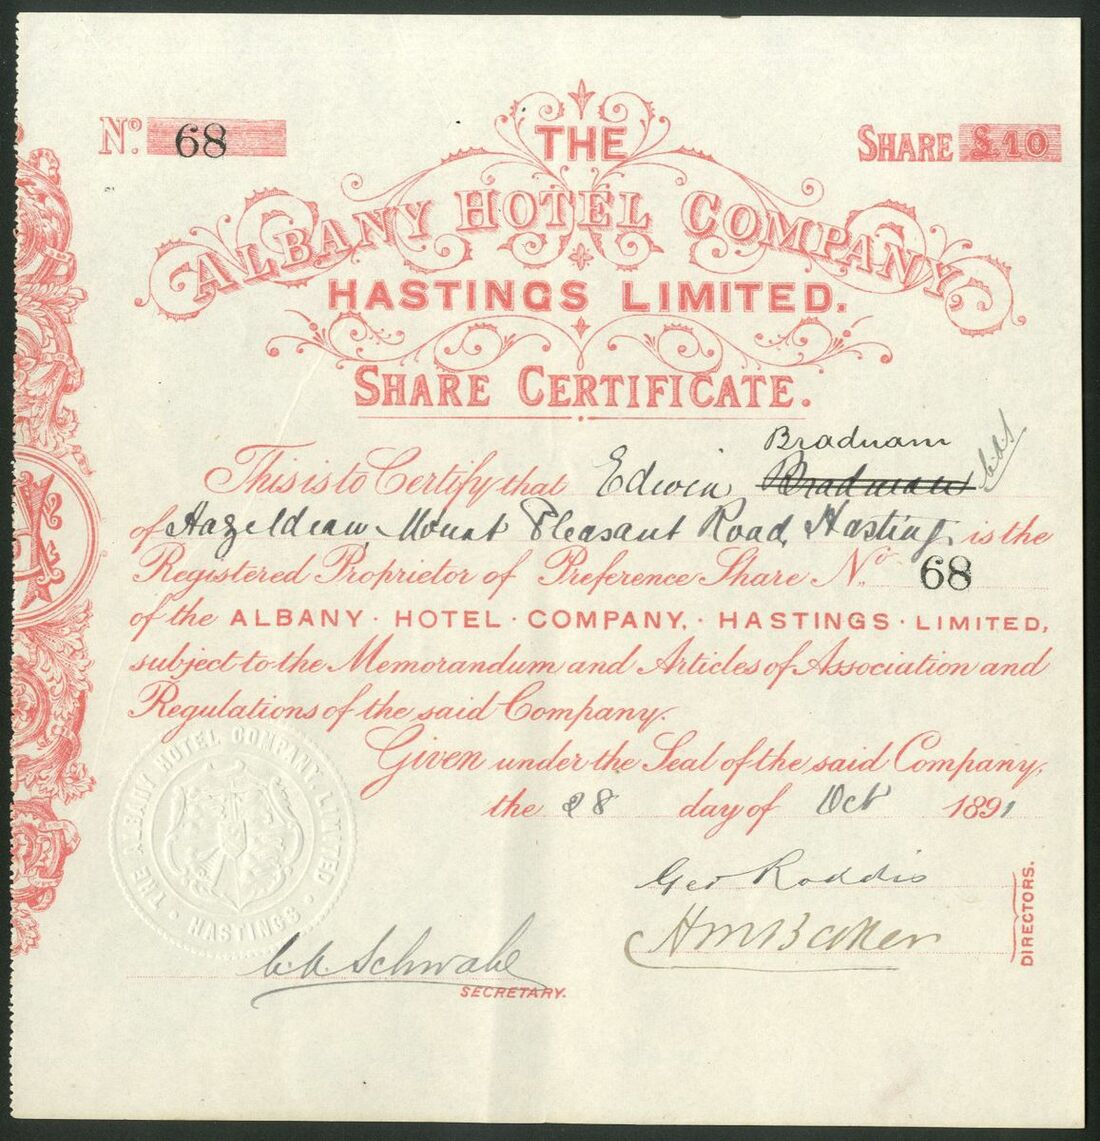 No. 68
SHARE £10
THE
ALBANY HOTEL COMPANY,
HASTINGS LIMITED.
SHARE CERTIFICATE.
Bradnam
This is to Certify that Edwin Bradman
of Hazeldean, Mount Pleasant Road, Hastings is the
Registered Proprietor of Preference Share No. 68
of the ALBANY · HOTEL · COMPANY, · HASTINGS · LIMITED,
subject to the Memorandum and Articles of Association and
Regulations of the said Company.
Given under the Seal of the said Company,
the 28 day of Oct 1891
THE ALBANY HOTEL COMPANY, LIMITED · HASTINGS ·
Geo Roddis
HMBaker
DIRECTORS.
C.A. Schwabe
SECRETARY.